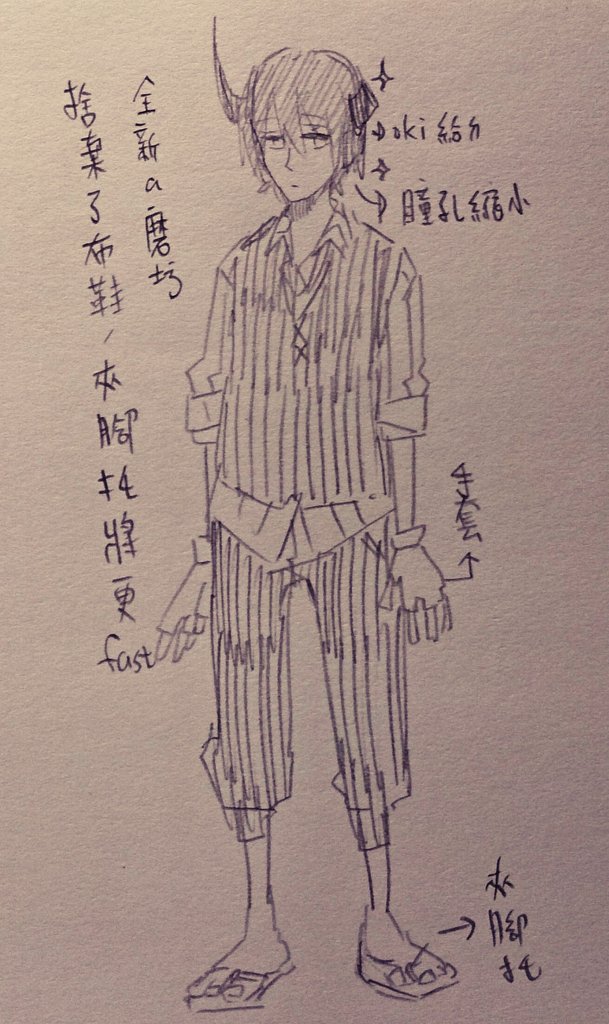 全新a磨坊
捨棄了布鞋，夾腳拖將更fast
oki給力
瞳孔縮小
手套
夾腳拖